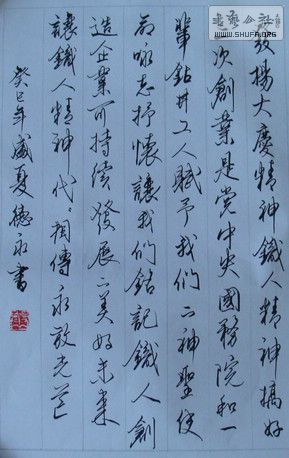 书法公社
WWW.SHUFA.ORG
發揚大慶精神鐵人精神搞好
次創業是党中央國務院和一
輩鉆井工人賦予我们的神聖使
命咏志抒懷讓我们銘記鐵人創
造企業可持續發展的美好未来
讓鐵人精神代々相傳永放光芒
癸巳年盛夏德永書